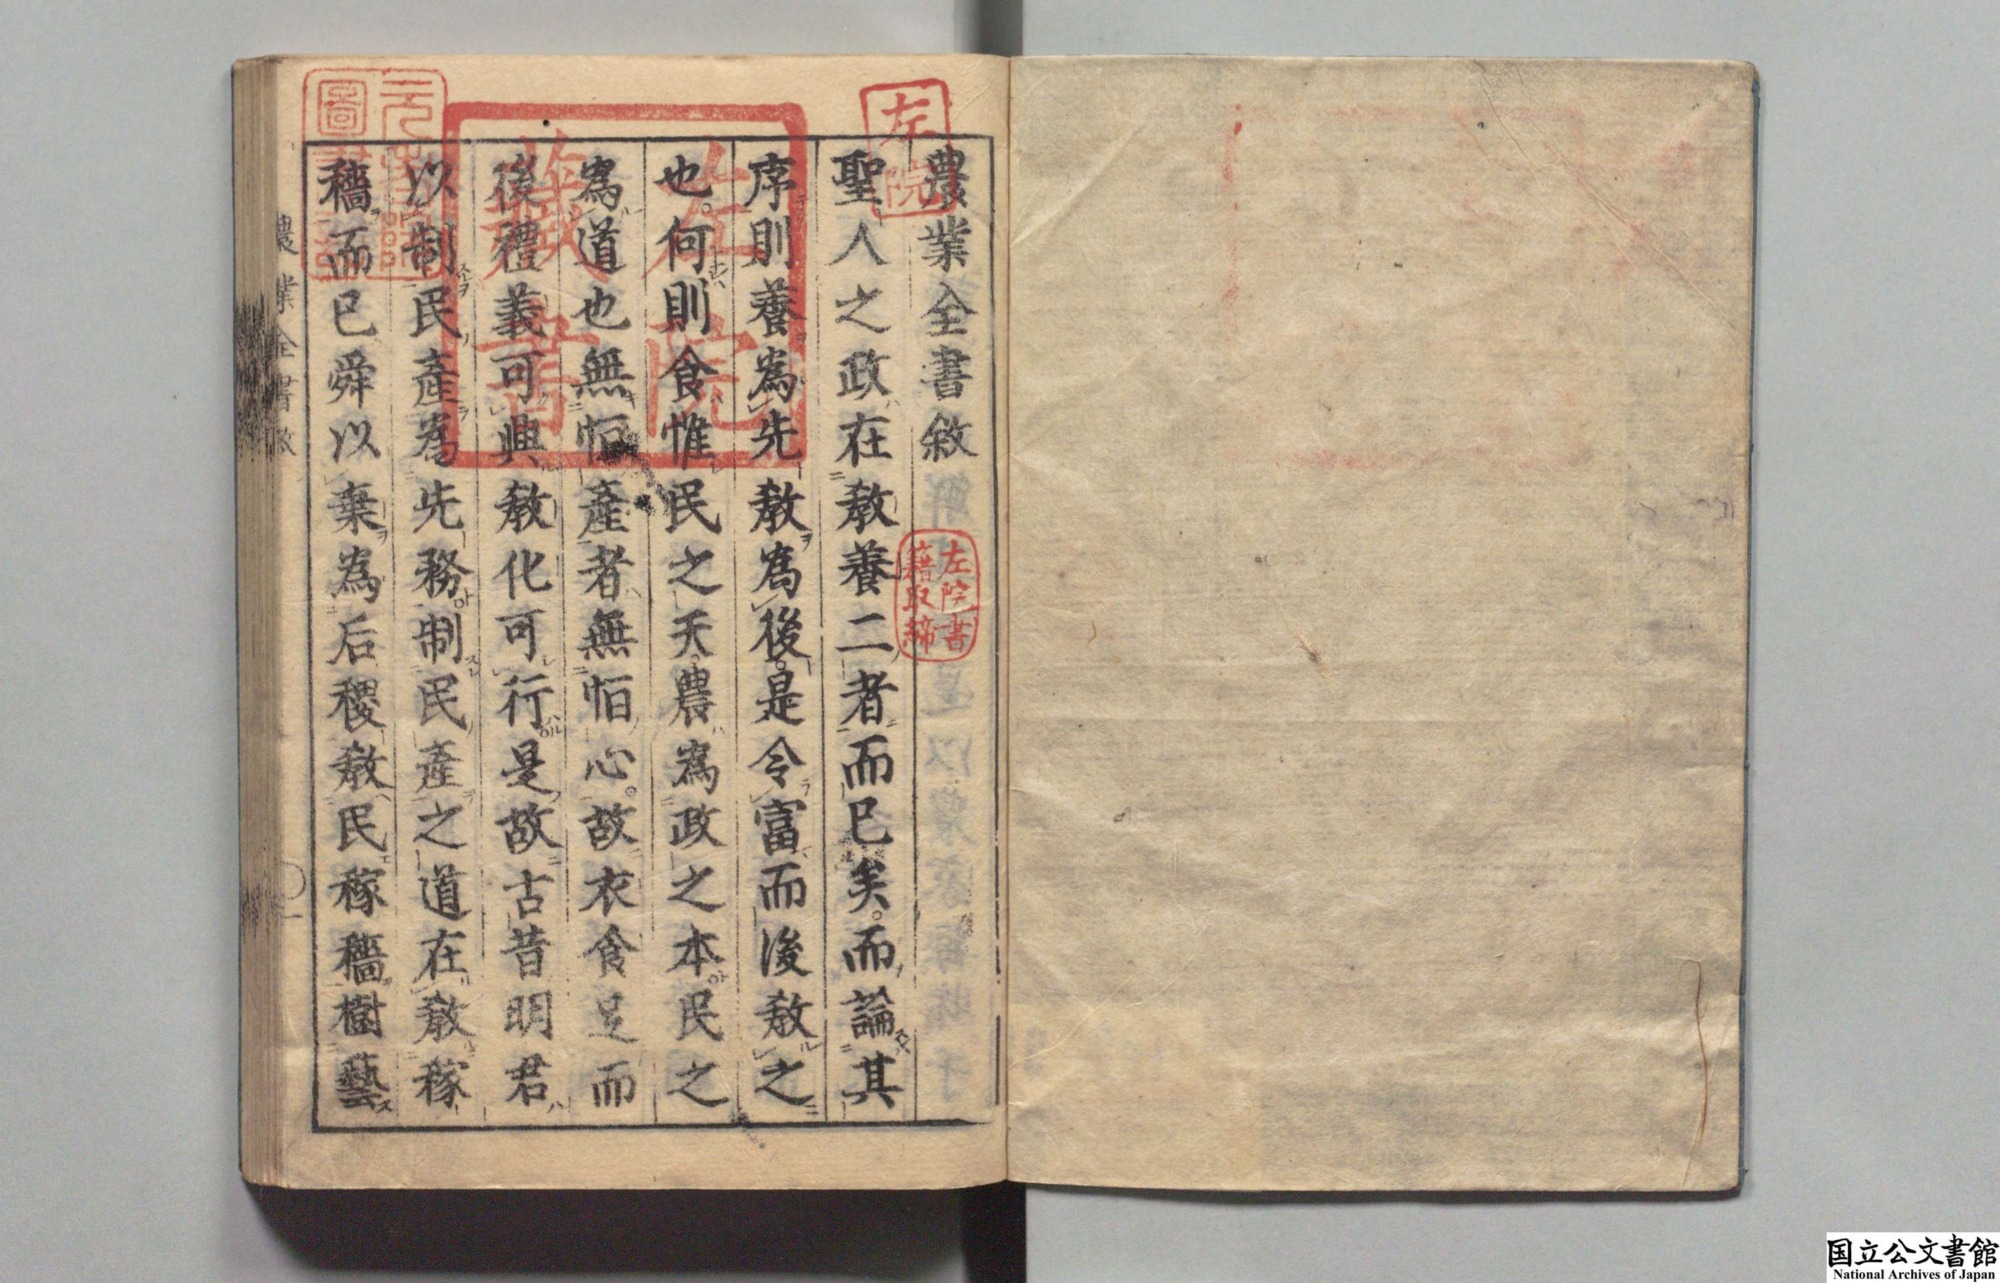 農業全書敘
聖人之政在教養二者而已矣。而論其
序則養爲先教爲後。是令富而後教之
也。何則食惟民之天。農爲政之本。民之
爲道也無恒產者無恒心。故衣食足而
後禮義可興教化可行。是故古昔明君
以制民產爲先務。制民產之道在教稼
穡而已舜以棄爲后稷教民稼穡樹藝
農業全書敘
左院
左院藏書
左院書籍取締
国立公文書館
National Archives of Japan